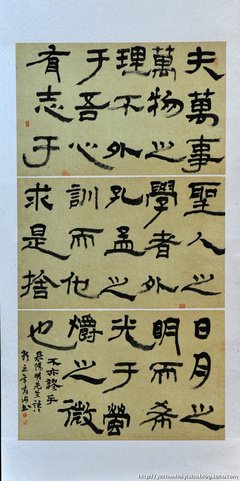 夫萬事
萬物之
理不外
于吾心
有志于
聖人之
學者外
孔孟之
訓而他
求是捨
日月之
明而希
光于螢
爝之微
也
不亦謬乎
陽明先生語